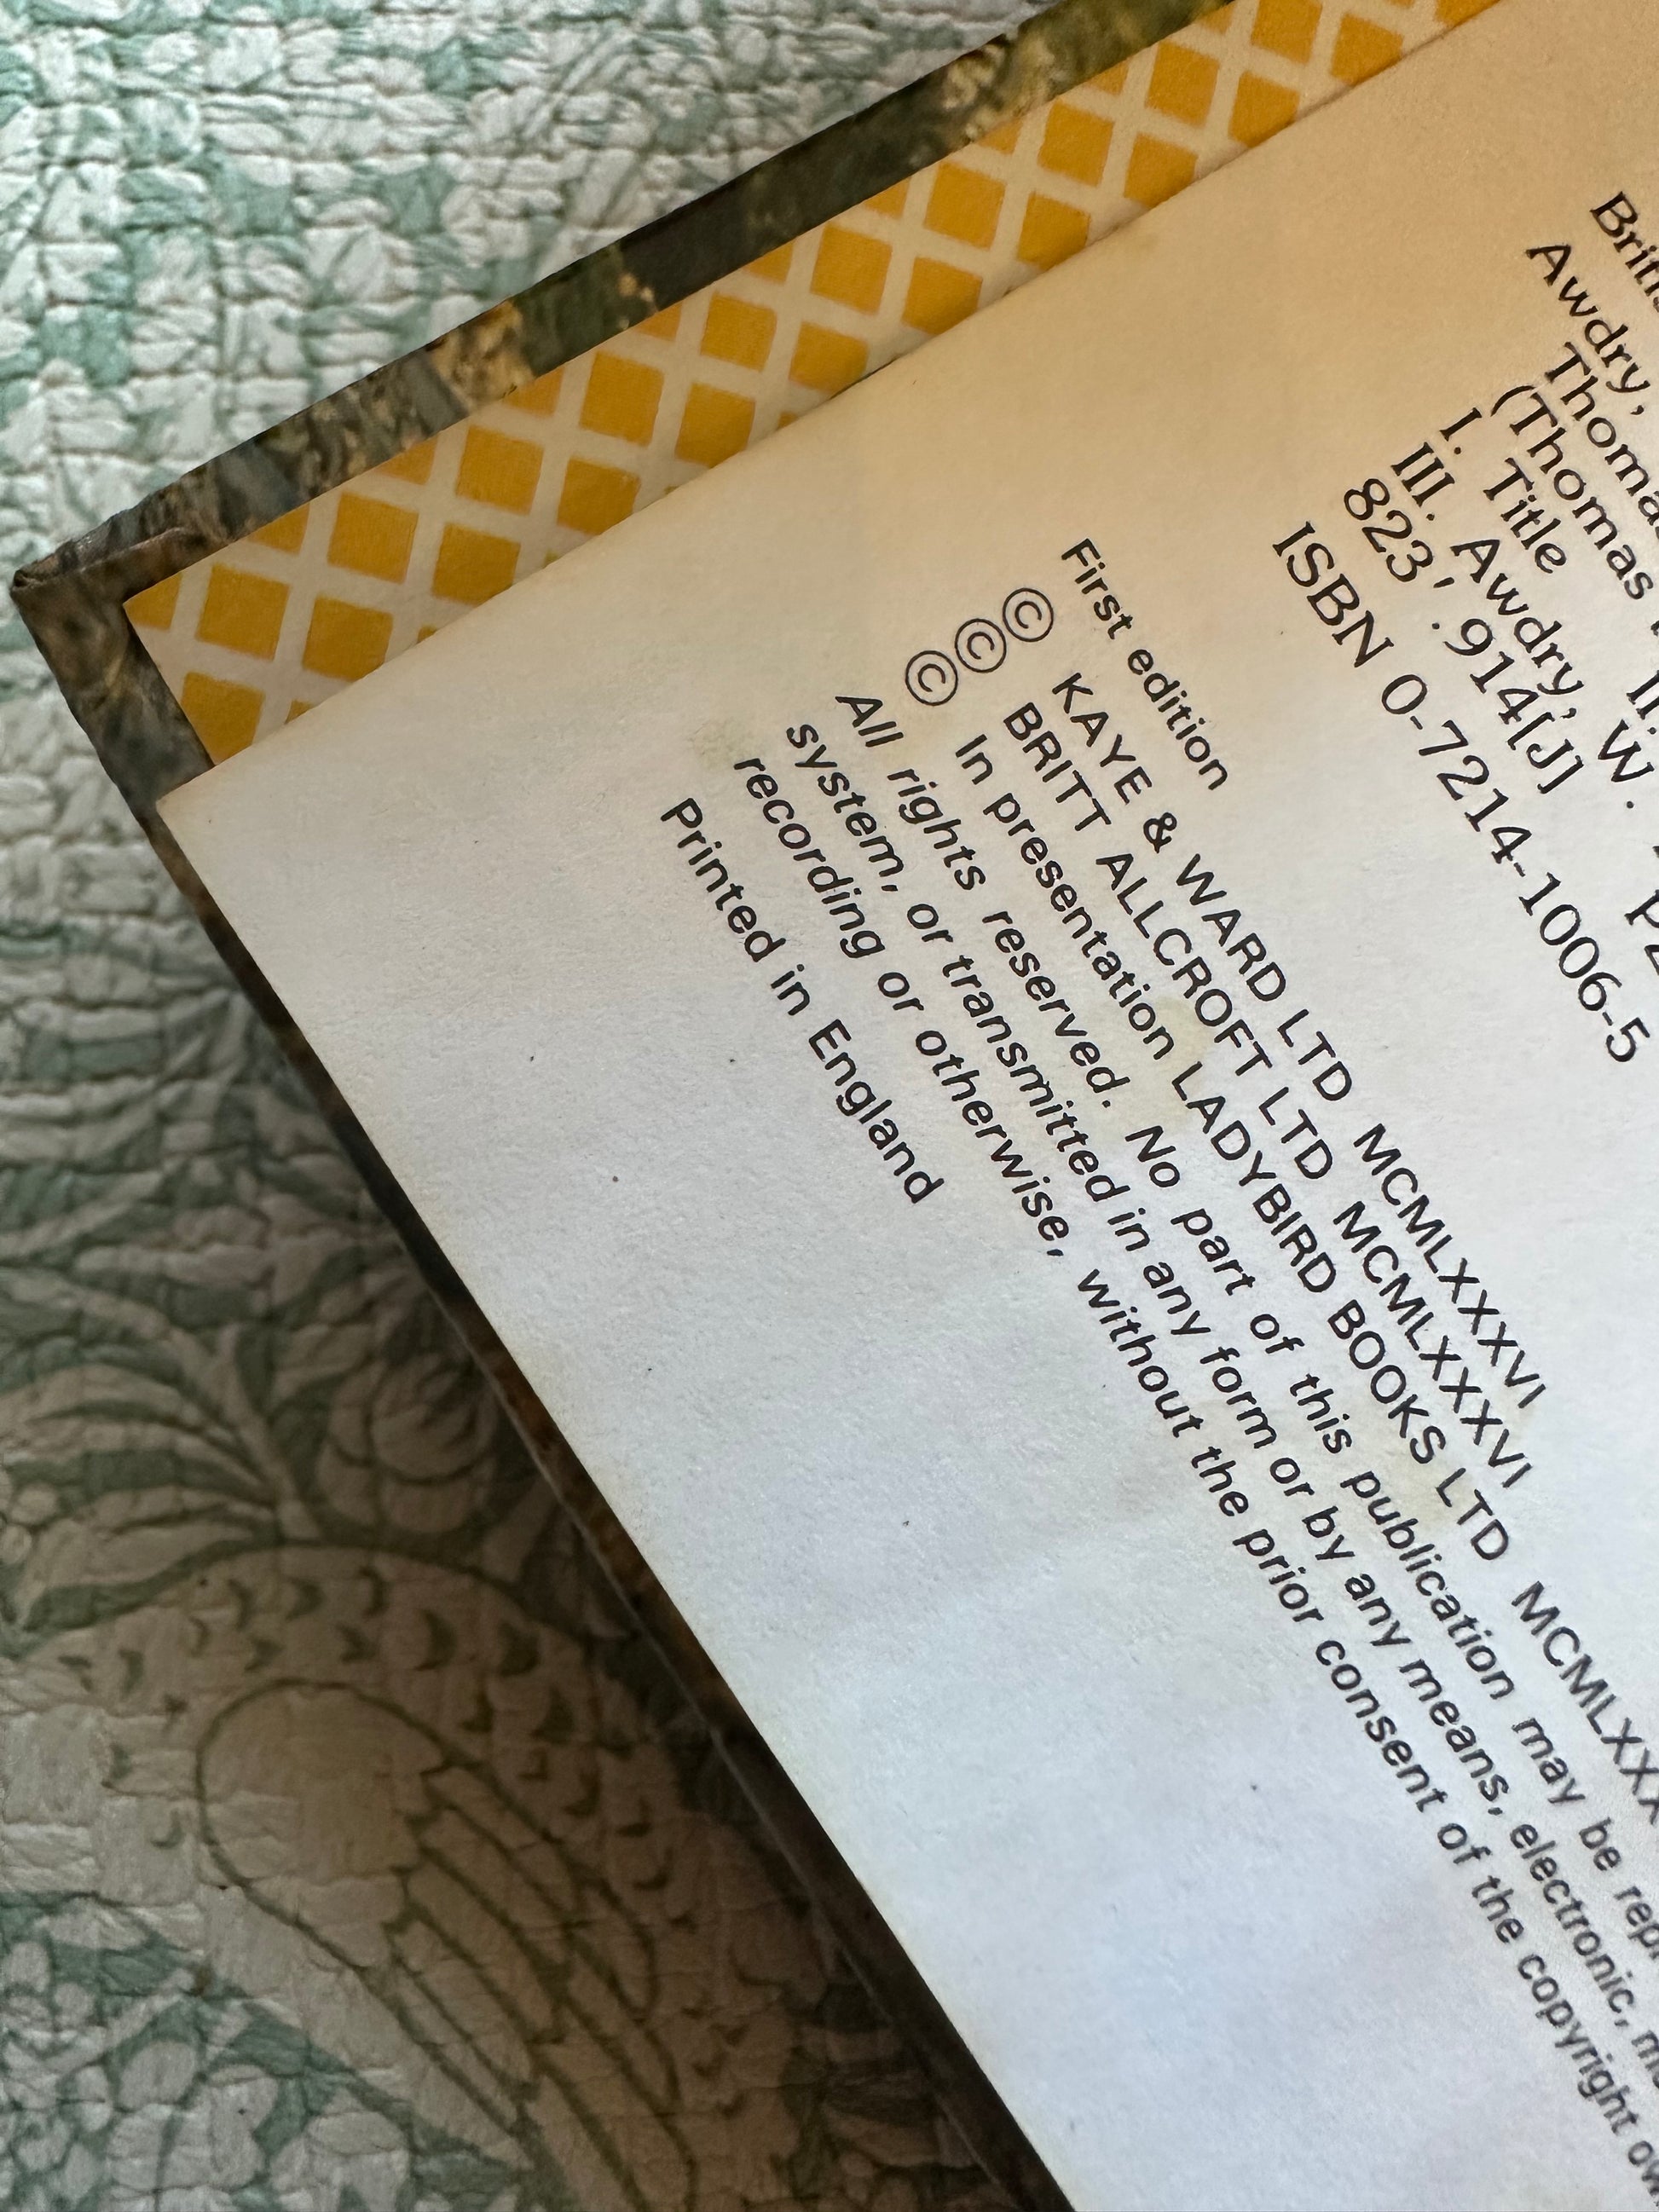 Awdry,
(Thomas
I. Title II.
III. Awdry, W.
823'.914[J]
ISBN 0-7214-1006-5
First edition
© KAYE & WARD LTD MCMLXXXVI
© BRITT ALLCROFT LTD MCMLXXXVI
© In presentation LADYBIRD BOOKS LTD
All rights reserved. No part of this publication may be
system, or transmitted in any form or by any means, electronic,
recording or otherwise, without the prior consent of the copyright
Printed in England